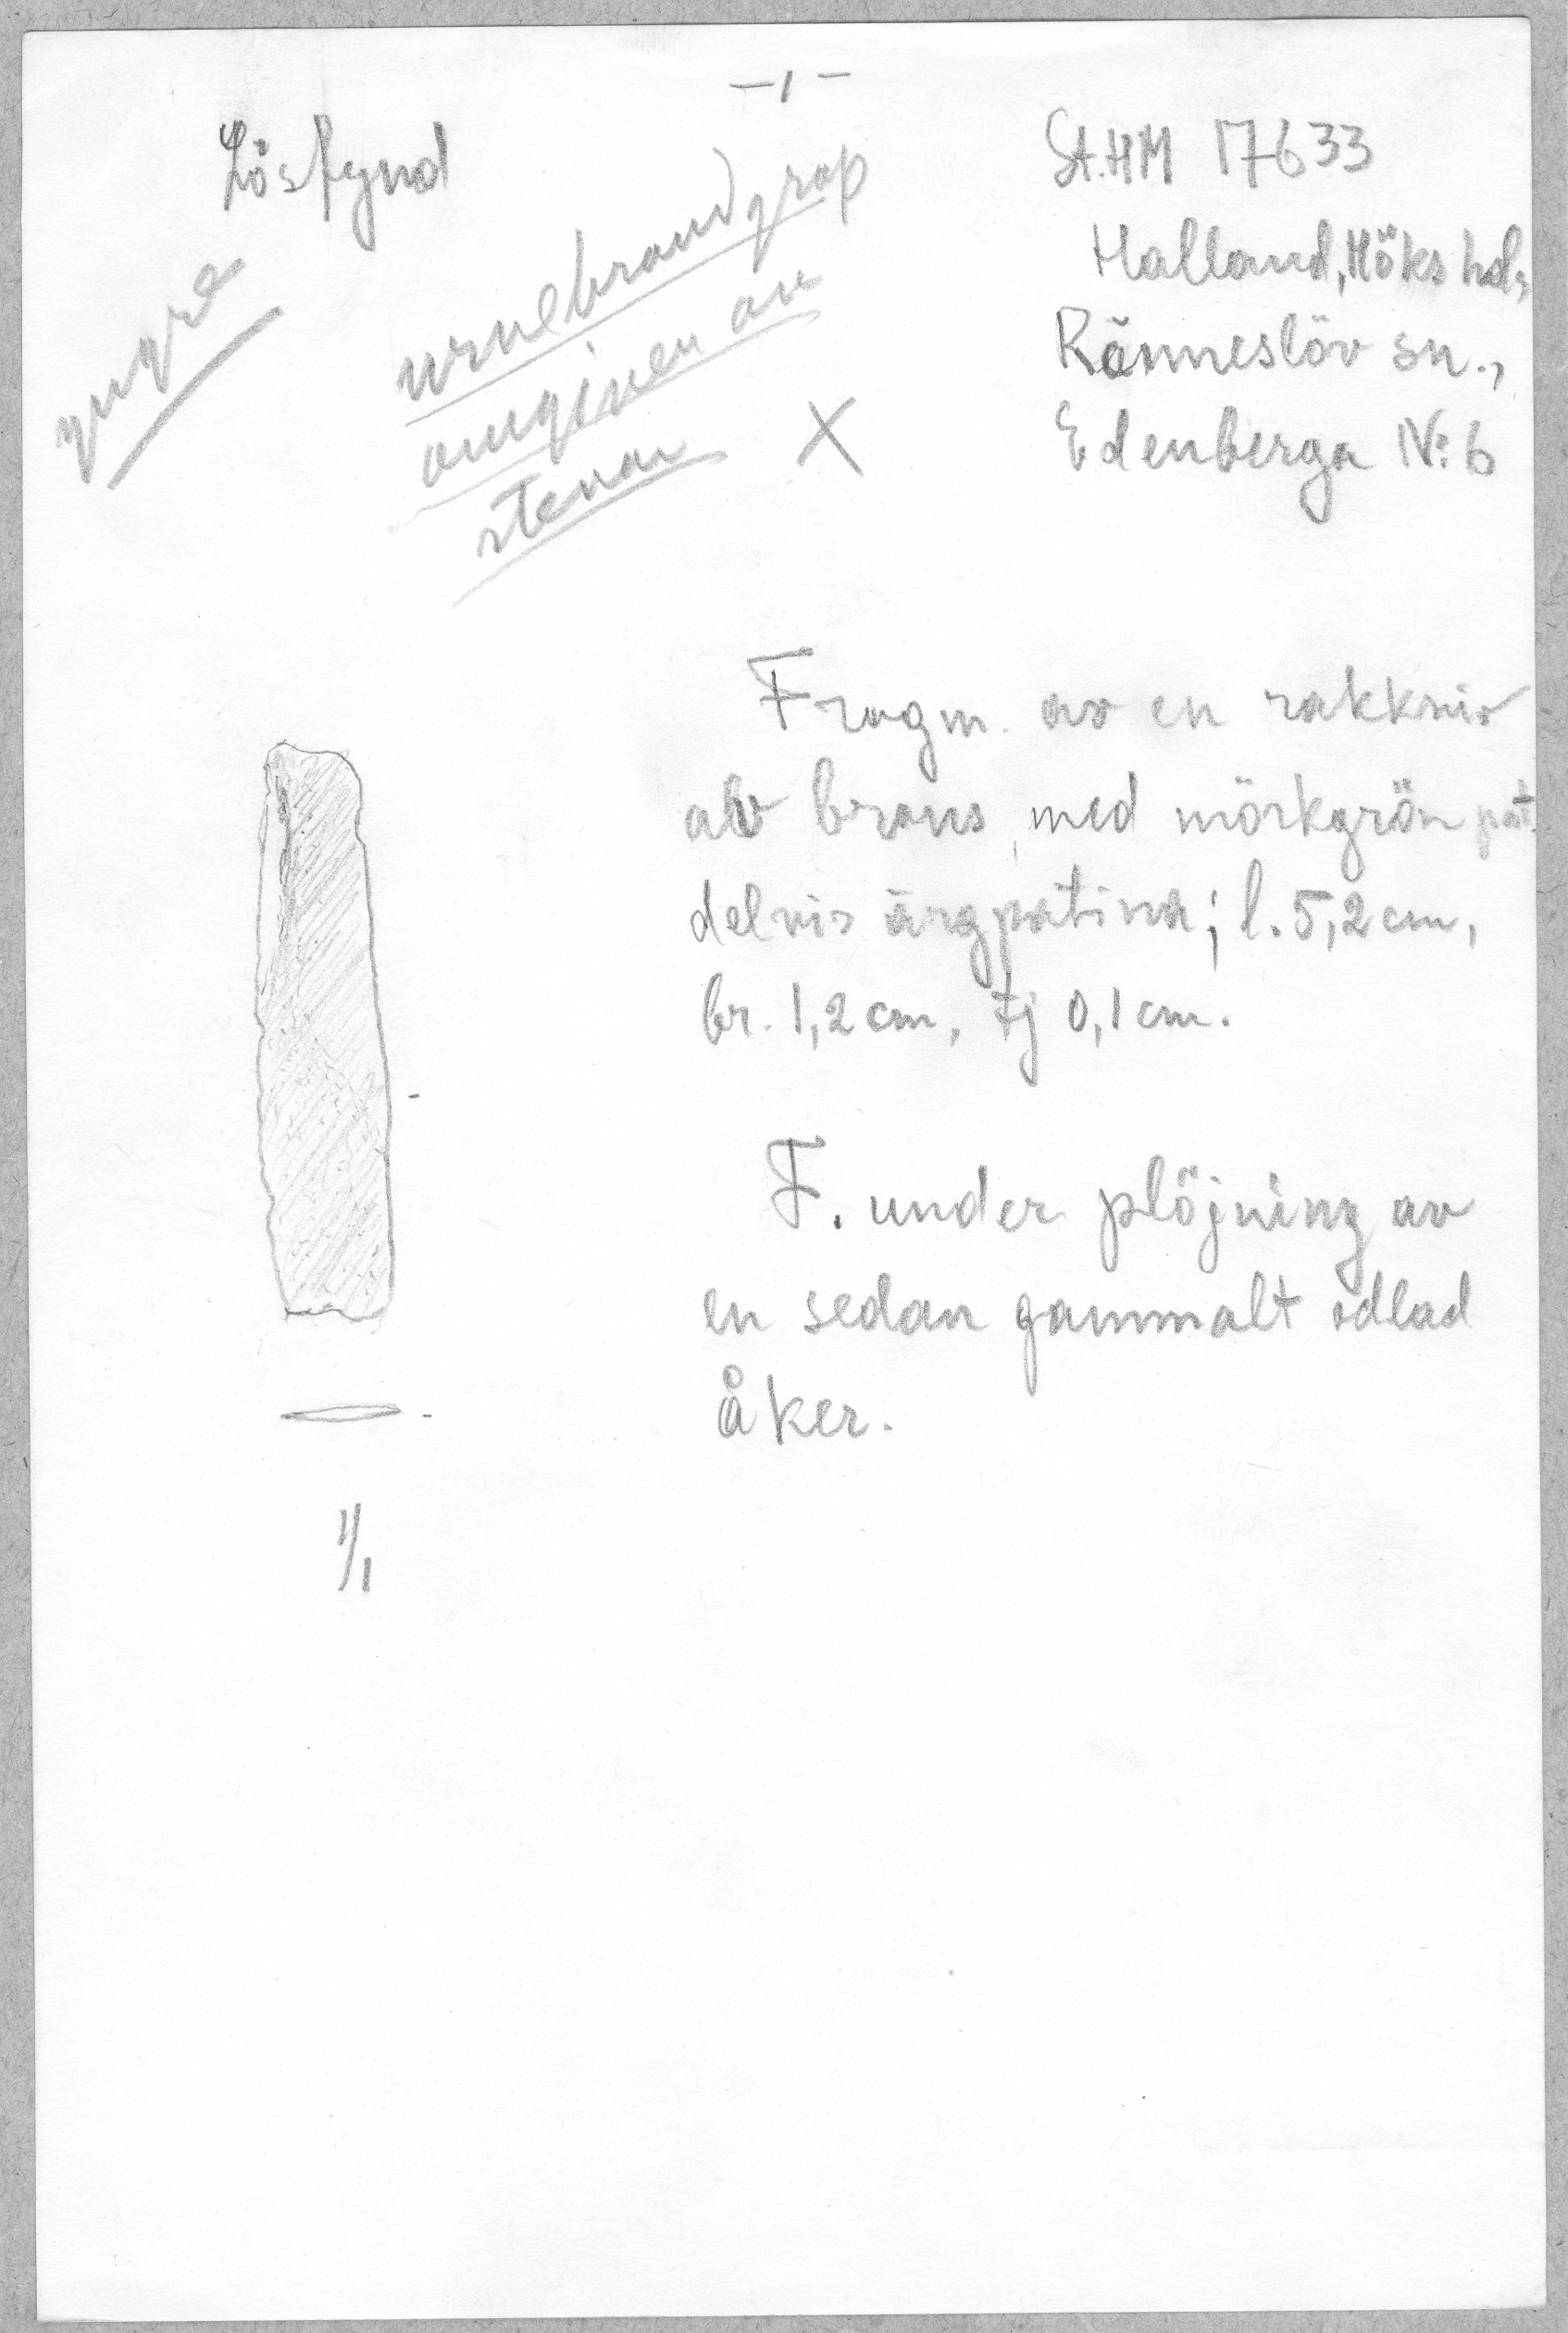 – 1 –
Lösfynd
yngre
urnebrandgrop
omgiven av
stenar
X
St.HM 17633
Halland, Höks hd.,
Ränneslöv sn.,
Edenberga Nº 6
Fragm. av en rakkniv
av brons med mörkgrön pat.
delvis ärgpatina; l. 5,2 cm,
br. 1,2 cm, tj 0,1 cm.
F. under plöjning av
en sedan gammalt odlad
åker.
1/1